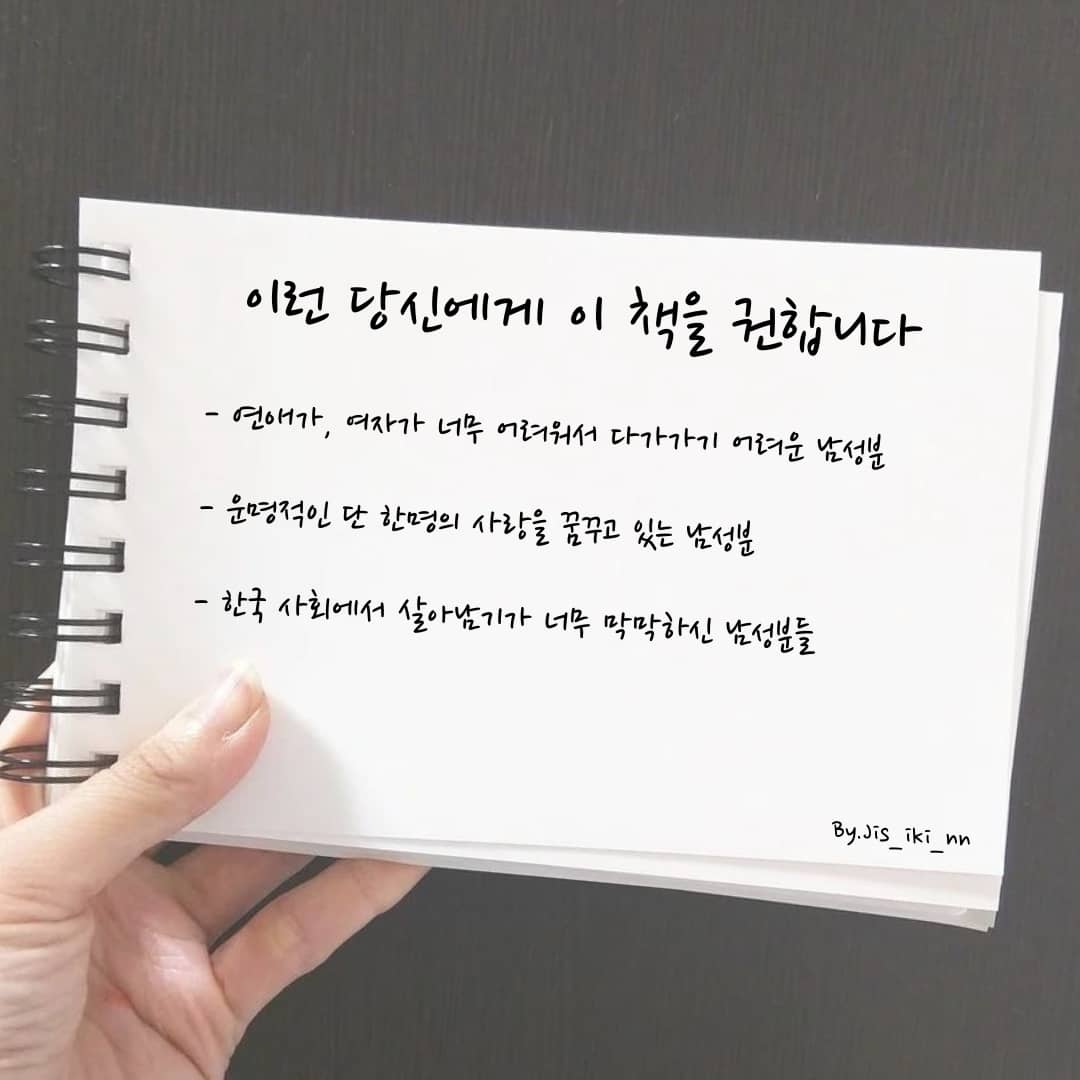 이런 당신에게 이 책을 권합니다
- 연애가, 여자가 너무 어려워서 다가가기 어려운 남성분
- 운명적인 단 한명의 사랑을 꿈꾸고 있는 남성분
- 한국 사회에서 살아남기가 너무 막막하신 남성분들
By.Jis_iki_nn